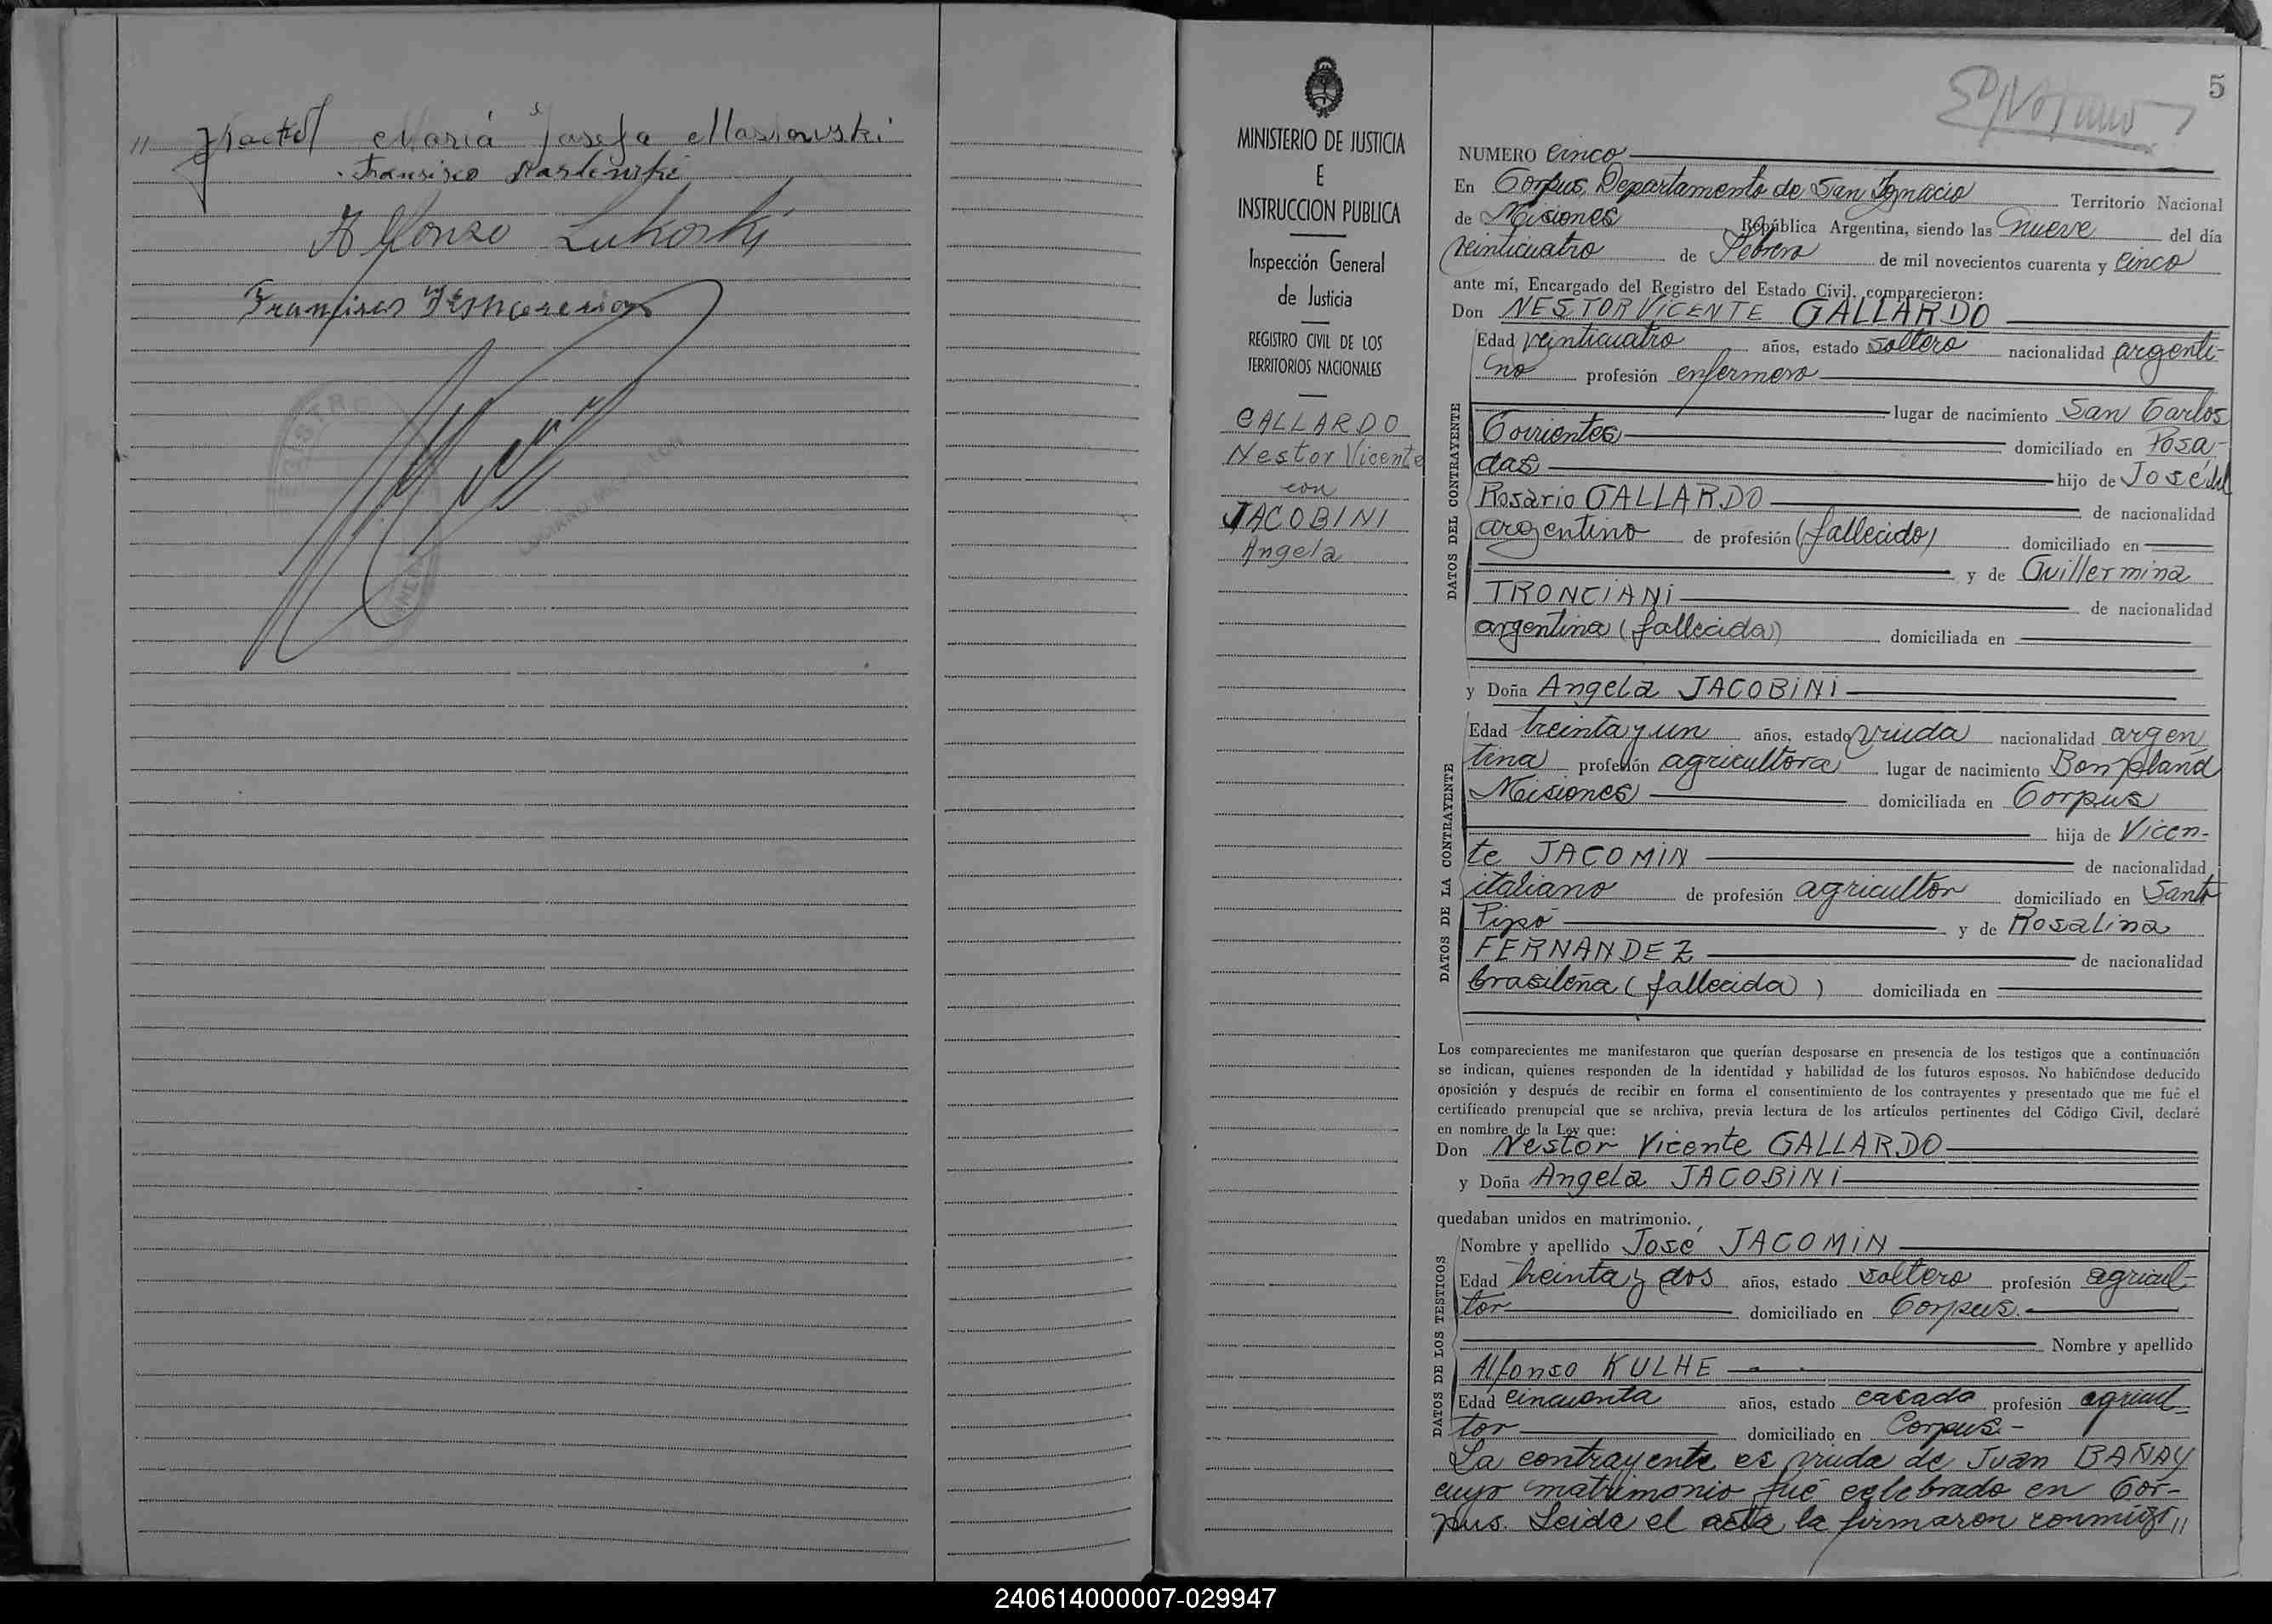 María Josefa Maslowski
Francisco Maslowski
Alfonso Lukoski
Francisco
5
MINISTERIO DE JUSTICIA
E
INSTRUCCION PUBLICA
Inspección General
de Justicia
REGISTRO CIVIL DE LOS
TERRITORIOS NACIONALES
GALLARDO
Nestor Vicente
con
JACOBINI
Angela
NUMERO cinco
En Corpus, Departamento de San Ignacio Territorio Nacional
de Misiones República Argentina, siendo las nueve del día
veinticuatro de Febrero de mil novecientos cuarenta y cinco
ante mí, Encargado del Registro del Estado Civil, comparecieron:
Don NESTOR VICENTE GALLARDO
Edad veinticuatro años, estado soltero nacionalidad argenti-
no profesión enfermero
lugar de nacimiento San Carlos
Corrientes domiciliado en Posa-
das hijo de José del
Rosario GALLARDO de nacionalidad
argentino de profesión (fallecido) domiciliado en
y de Guillermina
TRONCIANI de nacionalidad
argentina (fallecida) domiciliada en
DATOS DEL CONTRAYENTE
y Doña Angela JACOBINI
Edad treinta y un años, estado viuda nacionalidad argen
tina profesión agricultora lugar de nacimiento Bonpland
Misiones domiciliada en Corpus
hija de Vicen-
te JACOMIN de nacionalidad
italiano de profesión agricultor domiciliado en Santo
Pipó y de Rosalina
FERNANDEZ de nacionalidad
brasileña (fallecida) domiciliada en
DATOS DE LA CONTRAYENTE
Los comparecientes me manifestaron que querían desposarse en presencia de los testigos que a continuación
se indican, quienes responden de la identidad y habilidad de los futuros esposos. No habiéndose deducido
oposición y después de recibir en forma el consentimiento de los contrayentes y presentado que me fué el
certificado prenupcial que se archiva, previa lectura de los artículos pertinentes del Código Civil, declaré
en nombre de la Ley que:
Don Nestor Vicente GALLARDO
y Doña Angela JACOBINI
quedaban unidos en matrimonio.
Nombre y apellido José JACOMIN
Edad treinta y dos años, estado soltero profesión agricul-
tor domiciliado en Corpus.
Nombre y apellido
Alfonso KULHE
Edad cincuenta años, estado casado profesión agricul-
tor domiciliado en Corpus.-
DATOS DE LOS TESTIGOS
La contrayente es viuda de Juan BAÑAY
cuyo matrimonio fué celebrado en Cor-
pus. Leida el acta la firmaron conmigo,,
240614000007-029947